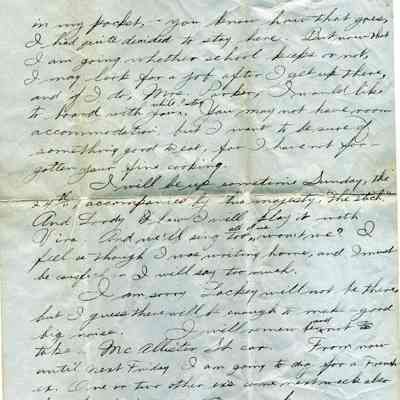 in my pocket, – you know how that goes,
I had quite decided to stay here. But now that
I am going whether school keeps or not,
I may look for a job after I get up there,
and if I do, Mrs. Parker, I would like
to board with you, while I stay. You may not have room
accommodation, but I want to be sure of
something good to eat, for I have not for-
gotten your fine cooking.
I will be up sometime Sunday, the
24th, accompanied by his majesty, the
And Lordy how I will play it with
Vira. And we'll sing too, won't we? I
feel as though I was writing home, and I must
be careful or I will say too much.
I am sorry Lackey will not be there,
but I guess there will be enough to make a good
big noise. I will remember not to
take McAllister St car. From now
until next Friday I am going to dig for a French
ex. One or two other exs come next week also